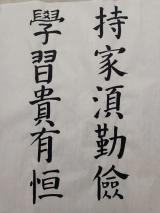 持家須勤儉
學習貴有恒